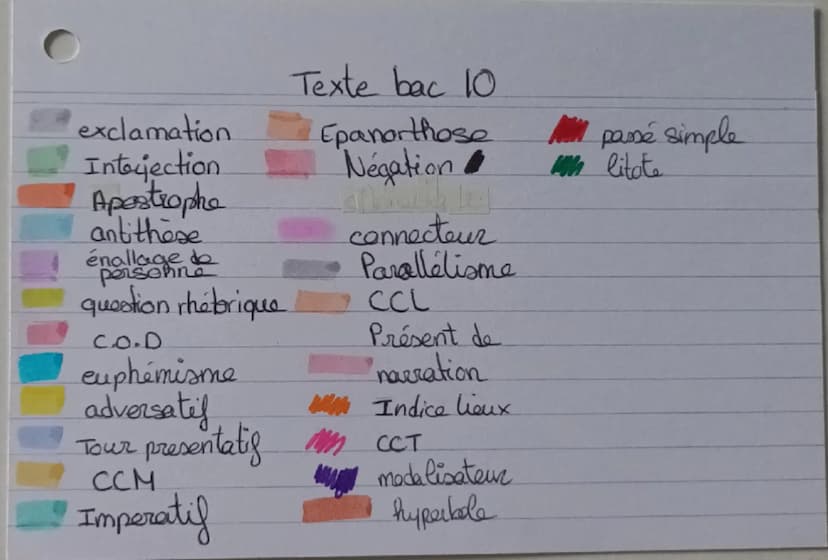 Texte bac 10
exclamation
Interjection
Apostrophe
antithèse
énallage de
personne
question rhébrique
C.O.D
euphémisme
adversatif
Tour presentatif
CCM
Imperatif
Epanorthose
Négation
connecteur
Parallélisme
CCL
Présent de
narration
Indice lieux
CCT
modalisateur
hyperbole
passé simple
litote